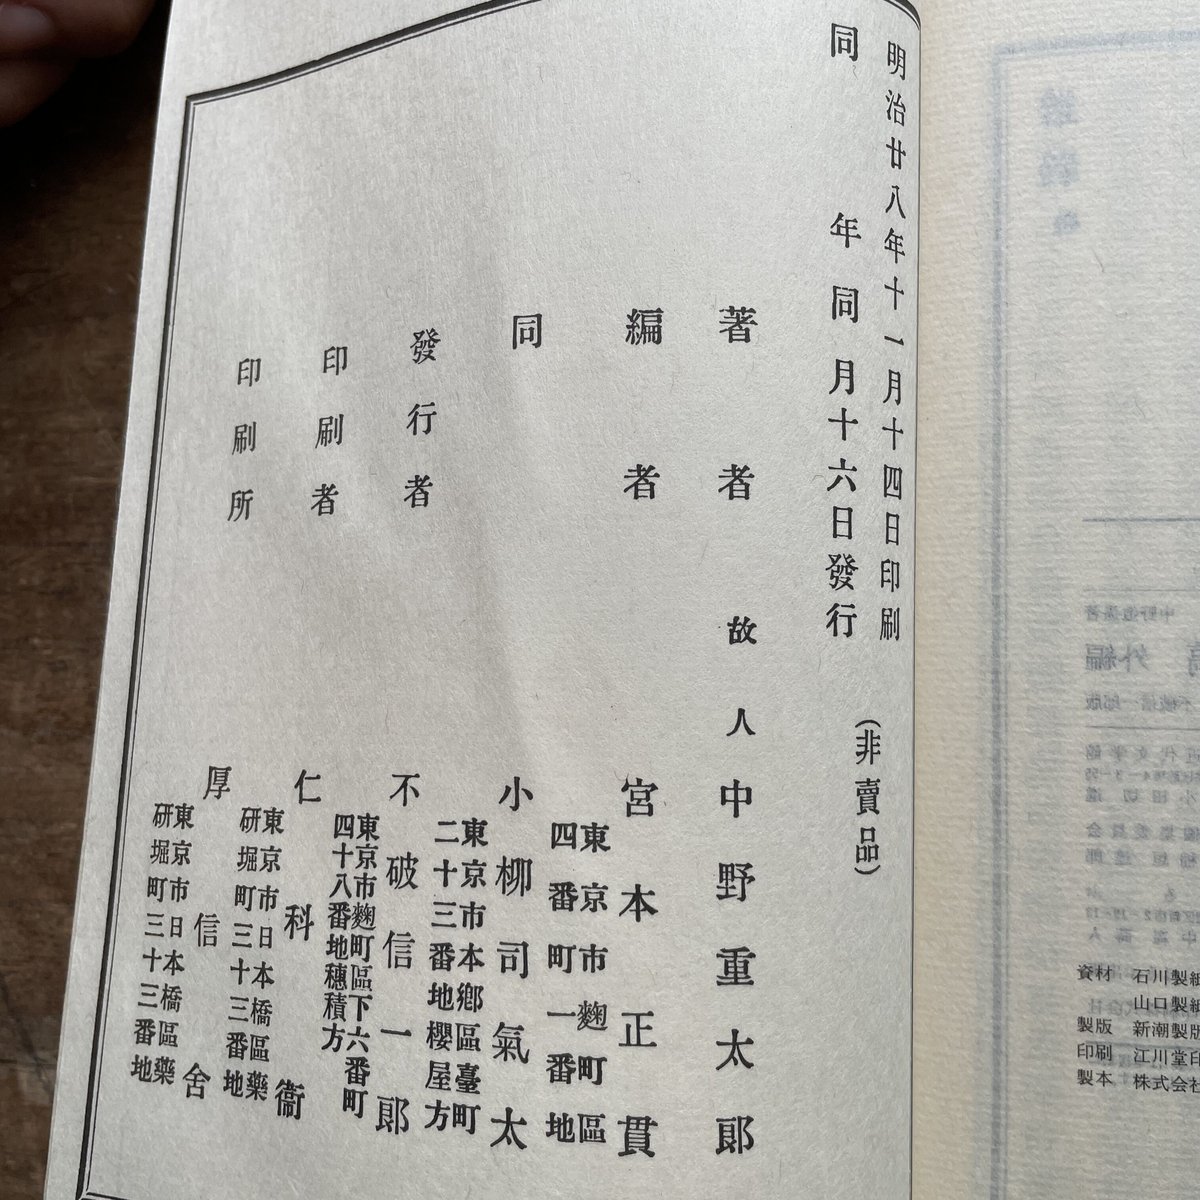 明治廿八年十一月十四日印刷
同年同月十六日發行
(非賣品)
著者 故人 中野重太郎
編者 宮本正貫
東京市麴町區
四番町一番地
同 小柳司氣太
東京市本鄕區臺町
二十三番地櫻屋方
發行者 不破信一郎
東京市麴町區下六番町
四十八番地穗積方
印刷者 仁科衞
東京市日本橋區藥
研堀町三十三番地
印刷所 厚信舍
東京市日本橋區藥
研堀町三十三番地
資材 石川製紙
山口製紙
製版 新潮製版
印刷 江川堂印
製本 株式会社